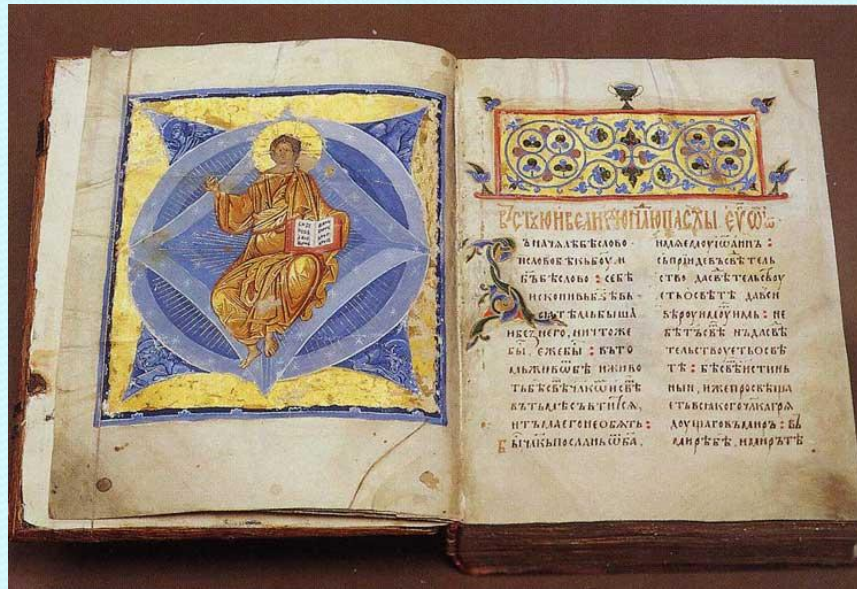 ъ начѧлѣ бѣ слово
и слово бѣ къ боу. и
бъ бѣ слово : се бѣ
искони въ ба҃ вь
сѧ тѣмь быша
и без него. ничтоже
бы. еже бы : въ то
мь живѡ бѣ и живо
ть бѣ свѣ чл҃кѡ и свѣ
въ тьмѣ съвѣтитсѧ.
и тъма его не обѧть :
Бы чл҃кь посланъ ѿ ба.
имѧ емоу иѡаннъ :
сь приде въ свѣ тель
ство да свѣтельсвоу
еть о свѣтѣ да вси
вѣроу имоу имь : не
бѣ тъ свѣ нъ да свѣ
тельствоуеть о свѣ
тѣ : бѣ свѣ истинь
ныи. иже просвѣща
еть всѧкого чл҃ка грѧ
доущаго въ миръ : въ
мирѣ бѣ. и миръ тѣ